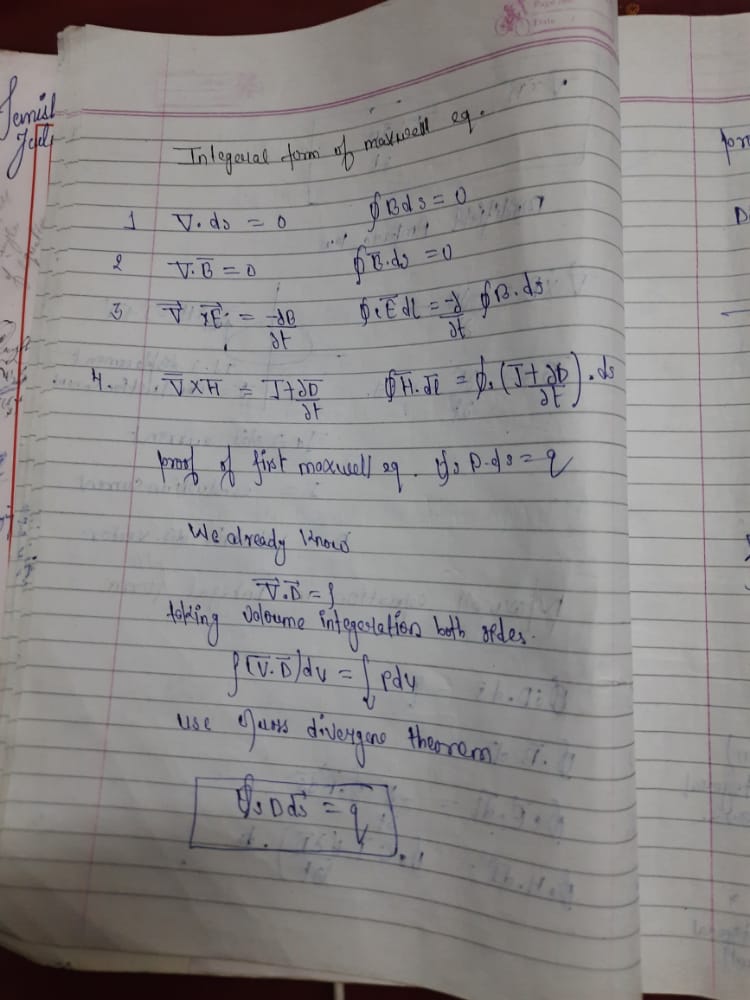 Integeral form of maxwell eq.
1 ∇.ds = 0 ∮Bds = 0
2 ∇.B̅ = 0 ∮B̅.ds = 0
3 ∇⃗ × E⃗ = -∂B/∂t ∮.E⃗dl = -∂/∂t ∮B.ds
4. ∇̅ × H = J+∂D/∂t ∮H̅.dl = ∮.(J+∂D/∂t).ds
proof of first maxwell eq. ∮s D.ds = q
We already know
∇.D̅ = ρ
taking voloume integeration both sides.
∫(∇.D̅)dv = ∫v ρdv
use Guss divergene theorem
∮s D ds⃗ = q